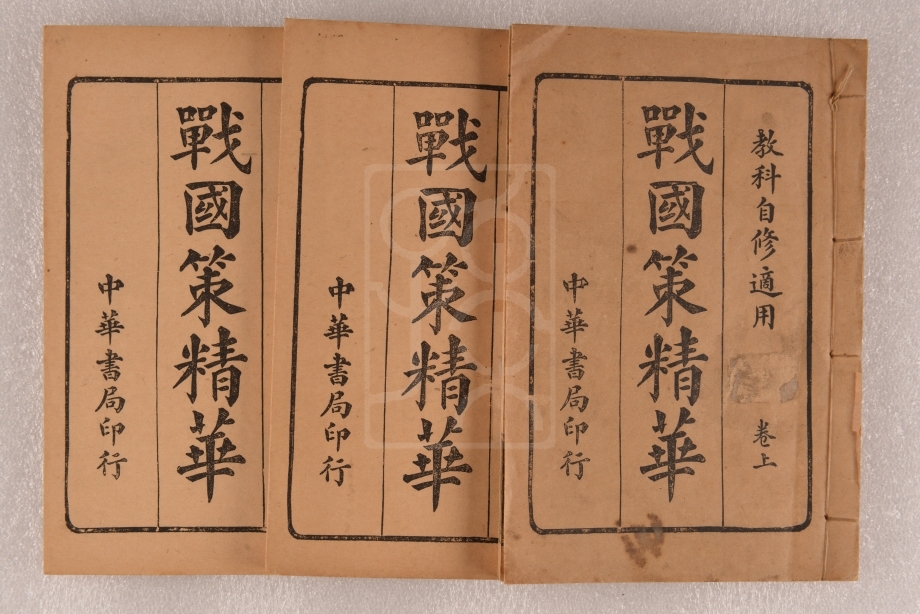 教科自修適用
卷上
戰國策精華
中華書局印行
戰國策精華
中華書局印行
戰國策精華
中華書局印行